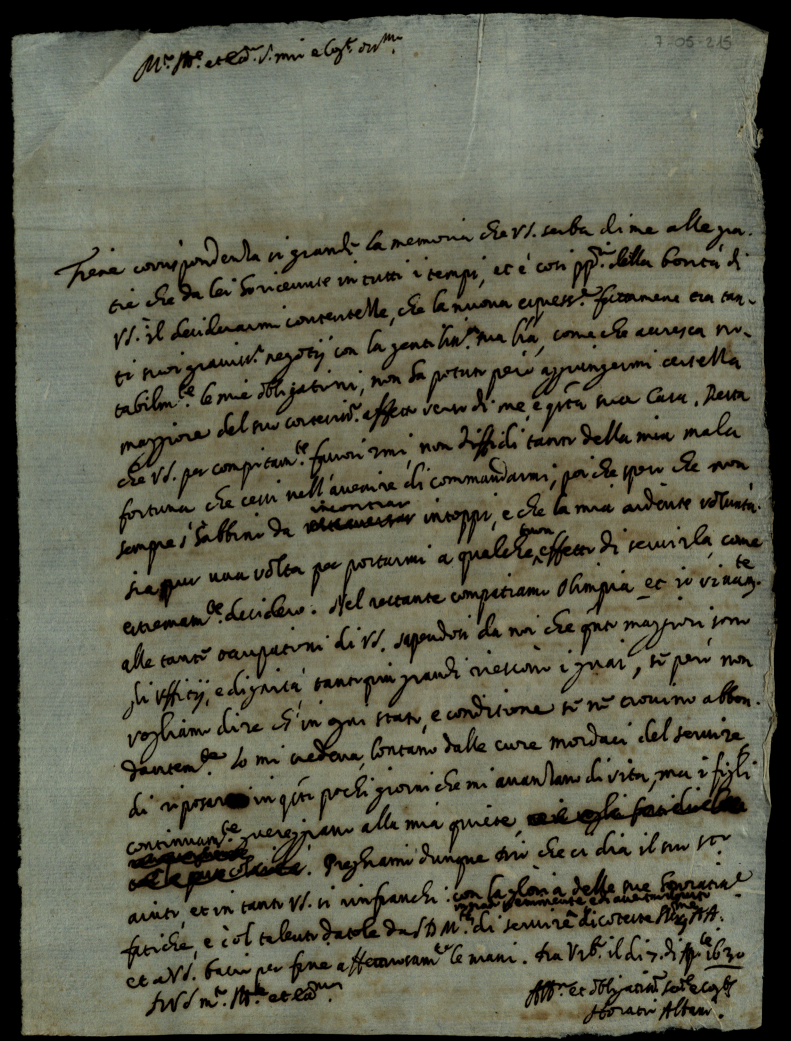 7-05-215
M.to Ill.re et Ecc.te S.r mio e Cog.to oss.mo
Tiene corrispondenza sì grande la memoria che VS. serba di me alle gra-
tie che da lei ho ricevute in tutti i tempi, et è così pp.a della bontà di
VS. il desiderarmi contentezze, che la nuova espress.e fattamene tra tan-
ti suoi graviss.i negotij con la gentiliss.ma sua l'ra, come che accresca no-
tabilm.te le mie obligationi, non ha potuto però aggiungermi certezza
maggiore del suo cortesiss.o affetto verso di me, e q'sta sua Casa. Resta
che VS. per compitam.te favorirmi, non diffidi tanto della mia mala
fortuna che cessi nell'avenire di commandarmi, poi che spero che non
sempre s'habbino da incontrar intoppi, e che la mia ardente voluntà
sia pur una volta per portarmi a qualche buon effetto di servirla, come
estremam.te desidero. Nel restante compatiamo Olimpia et io
alle tante occupationi di VS. sapendosi da noi che q'nto maggiori sono
gli Uffitij, e dignità, tanto più grandi riescono i guai, se però non
vogliamo dire ch'in ogni stato, e conditione se ne trovino abbon-
dantem.te Io mi credeva, lontano dalle cure mordaci del servire
di riposar in q'sti pochi giorni che mi avanzano di vita, ma i figli
continuam.te guereggiano alla mia quiete,
. Preghiami dunque Dio che ci dia il suo s.to
aiuto, et in tanto VS. si rinfranchi con la gloria delle sue honorate
fatiche, e col talento datole da S.D.M.tà di servire di coteste
et a VS. bacio per fine affettuosam.te le mani. Da Urb.o il dì 7. di Ap.le 1630
Di VS m.to Ill.re et Ecc.te
Aff.mo et obligatiss.o ser.re e Cog.to
Horatio Albani.